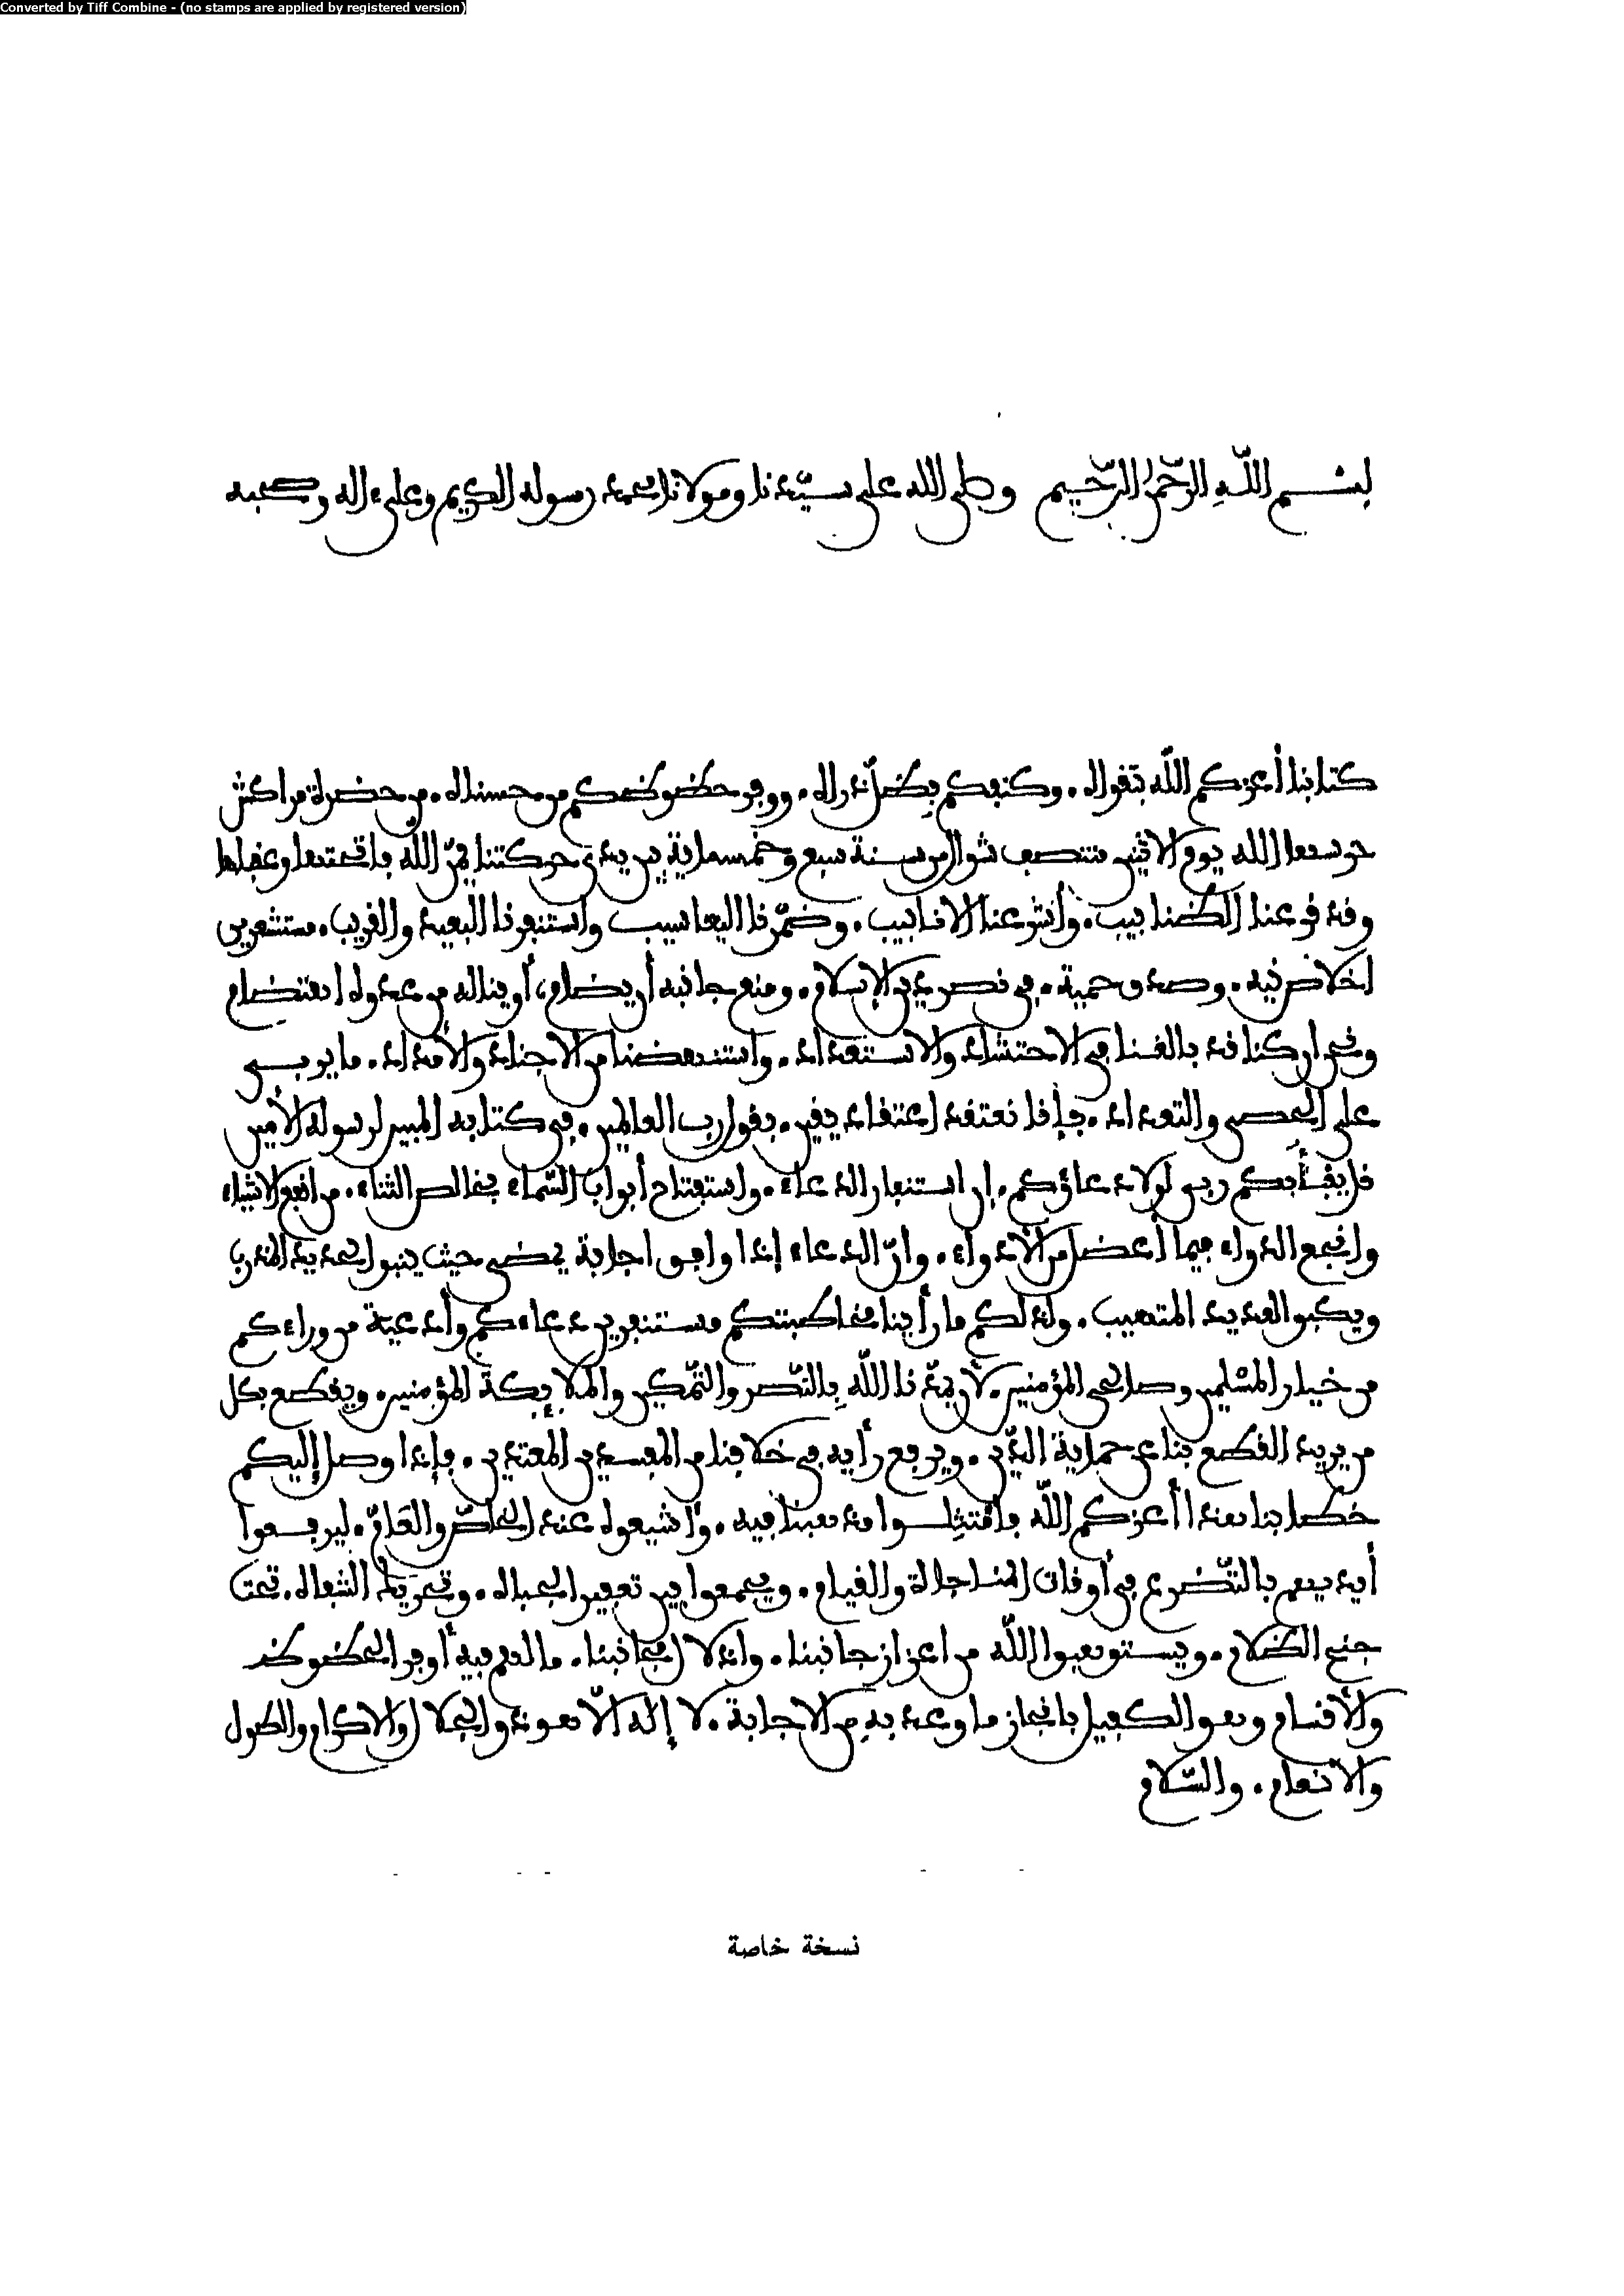 Converted by Tiff Combine - (no stamps are applied by registered version)
بسم اللّه الرّحمن الرّحيم وصلى الله على سيّدنا ومولانا محمد رسوله الكريم وعلى ءاله وصحبه
كتابنا أعزكم اللّه بتقواه. وكنفكم بظل ذراه. ووفر حظوظكم من حسناه. من حضرة مراكش
حرسها الله يوم الاثنين منتصف شوال من سنة سبع وخمسماية بين يدي حركتنا يمّن اللّه فاتحتها وعقباها
وقد قرعنا الظنابيب. وأشرعنا الانابيب. وضمّرنا اليعاسيب واستنفرنا البعيد والقريب. مستشعرين
اخلاص نيه. وصدق حمية. في نصر دين الإسلام. ومنع جانبه أن يضام، أو يناله من عدوه اهتضام
ونحن ان كنا قد بالغنا في الاحتشاد والاستعداد. واستنهضنا من الاجناد والأمداد. ما يربي
على الحصى والتعداد. فإنا نعتقد اعتقاد يقين. بقول رب العالمين. في كتابه المبين لرسوله الأمين
قل ما يعبأ بكم ربي لولا دعاؤكم. ان استنفار الدعاء. واستفتاح أبواب السّماء بخالص الثناء. من انفع الاشياء
وانجع الدواء فيما أعضل من الأدواء. وانّ الدعاء إذا وافق اجابة يمضي حيث ينبو الحديد المذرب
ويكبو العديد المتهيب. ولذلكم ما رأينا مخاطبتكم مستنفرين دعاءكم وأدعية من وراءكم
من خيار المسلمين وصالحي المؤمنين. لأن يمدّنا اللّه بالنّصر والتّمكين والملايكة المؤمنين. ويقطع بكل
من يريد القطع بنا عن حماية الدّين. ويرفع رأيه في خلافنا من المفسدين المعتدين. فإذا وصل إليكم
خطابنا هذا أعزكم اللّه فامتثلوا مذهبنا فيه. وأشيعوه عند الخاصّ والعامّ. ليرفعوا
أيديهم بالتّضرع في أوقات المناجاة والقيام. ويجمعوا بين تعفير الجباه. وتحريك الشفاه. تحت
جنح الظلام. ويستوهبوا اللّه من اعزاز جانبنا. واذلال مجانبنا. ما لهم فيه أوفر الحظوظ
والأقسام وهو الكفيل بانجاز ما وعد به من الاجابة. لا إله الاّ هو ذو الجلال والاكرام والطول
والانعام. والسّلام
نسخة خاصة